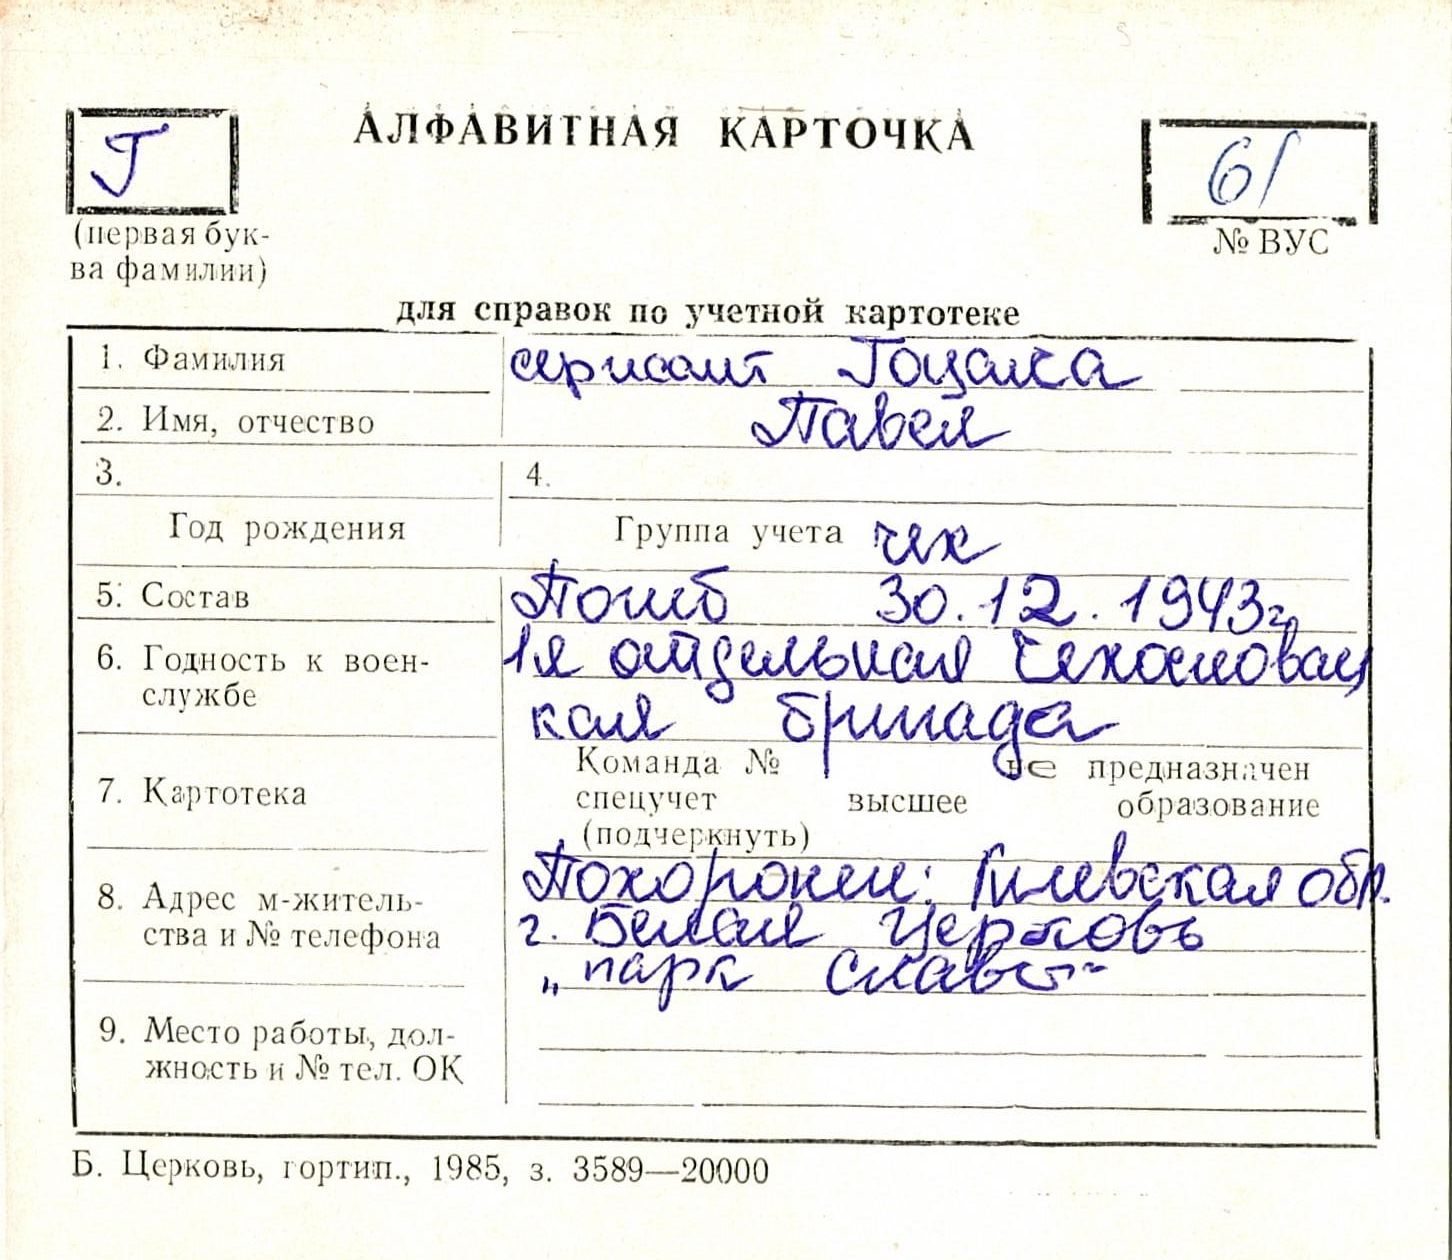 АЛФАВИТНАЯ КАРТОЧКА
Г
61
(первая бук-
ва фамилии)
№ ВУС
для справок по учетной картотеке
1. Фамилия сержант Гоцалка
2. Имя, отчество Павел
3. 4.
Год рождения Группа учета чех
5. Состав Погиб 30.12.1943г.
6. Годность к воен- 1я отдельная Чехословац
службе кая бригада
Команда № не предназначен
7. Картотека спецучет высшее образование
(подчеркнуть)
8. Адрес м-житель- Похоронен: Киевская обл.
ства и № телефона г. Белая Церковь
„парк Славы"
9. Место работы, дол-
жность и № тел. ОК
Б. Церковь, гортип., 1985, з. 3589—20000